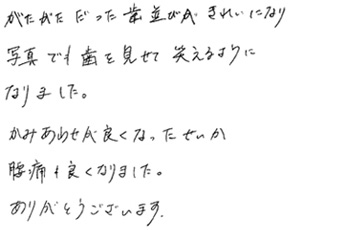 がたがただった歯並びがきれいになり
写真でも歯を見せて笑えるように
なりました。
かみあわせが良くなったせいか
腰痛も良くなりました。
ありがとうございます.